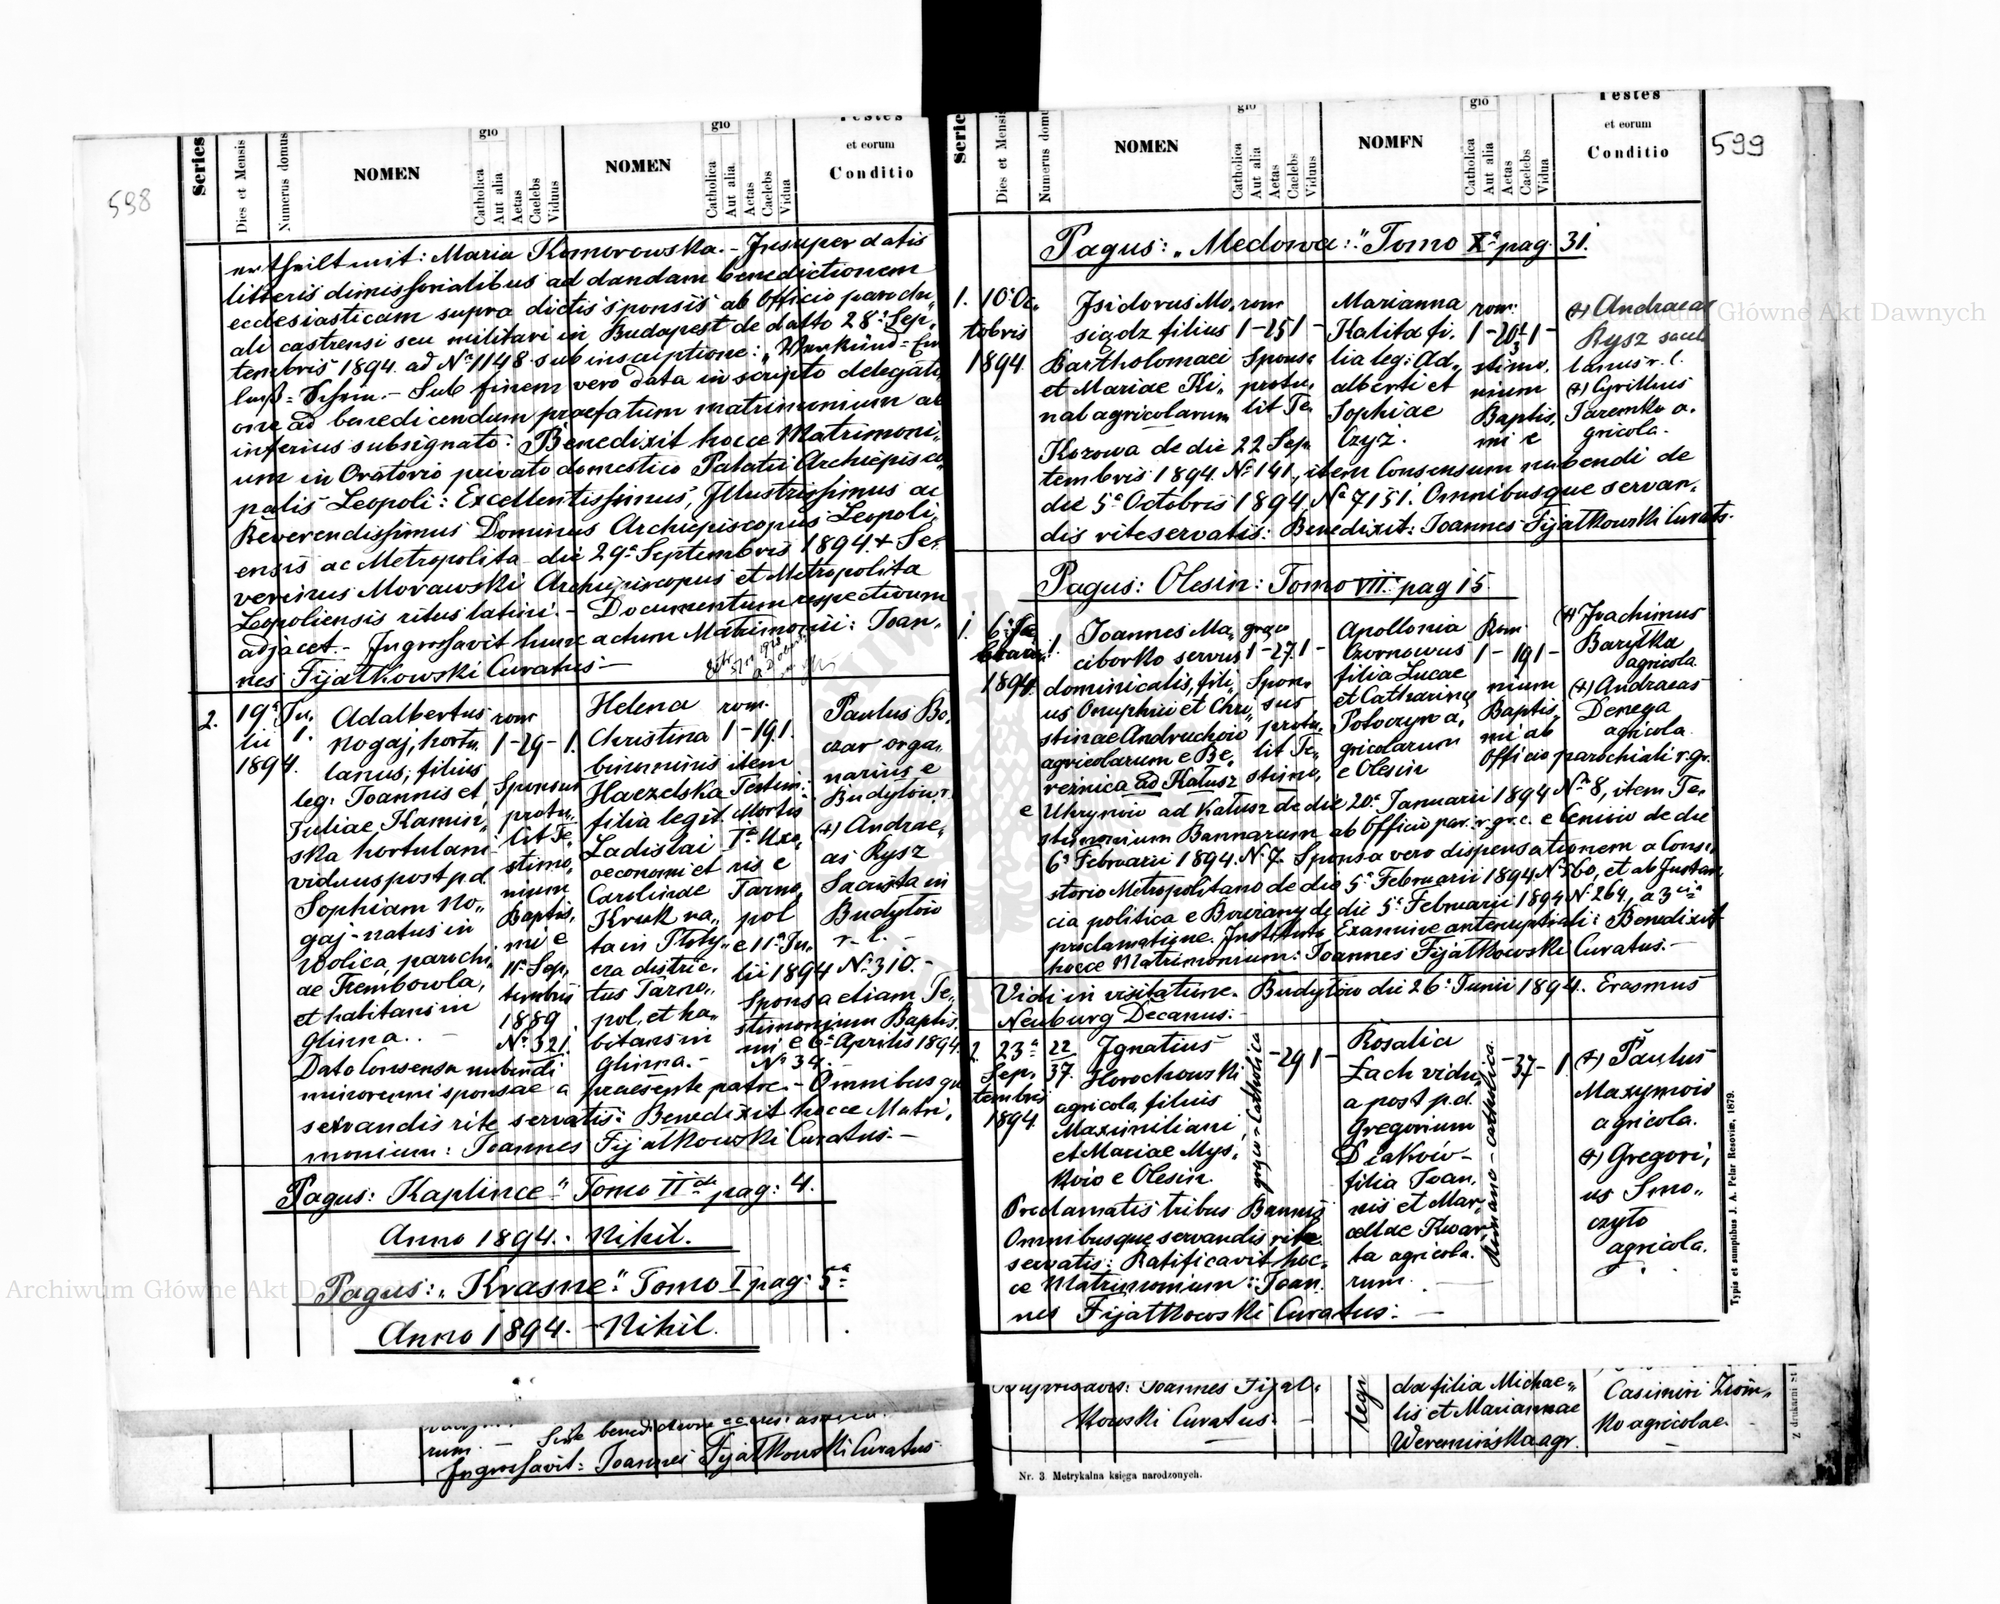 598
Series
Dies et Mensis
Numerus domus
NOMEN
gio
Catholica
Aut alia
Aetas
Caelebs
Viduus
NOMEN
gio
Catholica
Aut alia.
Aetas
Caelebs
Vidua
Testes
et eorum
Conditio
ertheilt mit: Maria Komorowska. - Insuper datis
litteris dimissorialibus ad dandam benedictionem
ecclesiasticam supra dictis sponsis ab Officio parochi„
ali castrensi seu militari in Budapest de datto 28a Sep„
tembris 1894 ad No 1148 sub inscriptione: „Verkünd=Ent
laß=Schein. - Sub finem vero data in scripto delegati„
one ad benedicendum praefatum matrimonium ab
inferius subsignato: Benedixit hocce Matrimoni„
um in Oratorio privato domestico Palatii Archiepisco„
palis Leopoli: Excellentissimus, Illustrissimus ac
Reverendissimus Dominus Archiepiscopus Leopoli„
ensis ac Metropolita die 29a Septembris 1894 + Se„
verinus Morawski Archiepiscopus et Metropolita
Leopoliensis ritus latini. - Documentum respectivum
adjacet. - Ingrossavit hunc actum Matrimonii: Joan„
nes Fijałkowski Curatus. -
2.
19a Ju„
lii
1894.
1.
Adalbertus
Nogaj, hortu„
lanus, filius
leg: Joannis et
Juliae Kamin„
ska hortulan
viduus post p.d.
Sophiam No„
gaj - natus in
Wolica, parochi„
ae Trembowla,
et habitans in
Glinna. -
rom
1-29-1.
Sponsus
protu„
lit Te„
stimo„
nium
Baptis„
mi e
11a Sep„
tembris
1889
No 321
Helena
Christina
binominis
Haczelska
filia legit.
Ladislai
oeconomi et
Carolinae
Kruk na„
ta in Ploty„
cza distric„
tus Tarno„
pol, et ha„
bitans in
Glinna. -
rom.
1-19 1.
item
Testim:
Mortis
Iae Uxo„
ris e
Tarno„
pol
e 11a Ju„
lii 1894 No 310. -
Sponsa etiam Te„
stimonium Baptis„
mi e 6a Aprilis 1894
No 34.
Paulus Bo„
czar orga„
narius e
Budyłów,
(+) Andrae„
as Rysz
Sacrista in
Budyłów
r. l. -
Dato Consensu nubendi
minorenni sponsae a praesente patre. - Omnibusque
servandis rite servatis: Benedixit hocce Matri„
monium: Joannes Fijałkowski Curatus. -
Pagus: Kaplince" Tomo IIdo pag: 4.
Anno 1894. - Nihil.
Pagus: „Krasne": Tomo I pag: 5a
Anno 1894. - Nihil.
rum. - Sine benedictione ecclesiastica.
Ingrossavit: Joannes Fijałkowski Curatus
599
Series
Dies et Mensis
Numerus domus
NOMEN
gio
Catholica
Aut alia
Aetas
Caelebs
Viduus
NOMEN
gio
Catholica
Aut alia
Aetas
Caelebs
Vidua
Testes
et eorum
Conditio
Pagus: „Medowa:" Tomo Xo pag. 31.
1.
10a Oc„
tobris
1894.
Isidorus Mo„
sigdz filius
Bartholomaei
et Mariae Ki„
nal agricolarum
rom
1-25 1-
Sponsa
protu„
lit Te„
Marianna
Kalita fi„
lia leg: Ad„
alberti et
Sophiae
Czyż.
rom:
1-20 1-
stimo„
nium
Baptis„
mi e
(+) Andraeas
Rysz
lanus r. l.
(+) Cyrillus
Jaremko a„
gricola. -
Kozowa de die 22 Sep„
tembris 1894. No 141., item Consensum nubendi de
die 5a Octobris 1894 No 7151. Omnibusque servan„
dis rite servatis: Benedixit: Joannes Fijałkowski Curats.
Pagus: Olesin: Tomo VII: pag 15.
1.
6a Fe„
bruarii
1894
1.
Joannes Ma„
ciborko servus
dominicalis, fili„
us Onuphrii et Chri„
stinae Andruchów
agricolarum e Be„
reźnica ad Kałusz
graeco
1-27 1-
Spon„
sus
protu„
lit Te„
stimo„
Apollonia
Czornowus
filia Lucae
et Catharinae
Potoczyn a„
gricolarum
e Olesin
Rom.
1-19 1-
nium
Baptis„
mi ab
Officio parochiali r. gr.
(+) Joachimus
Baryłka
agricola
(+) Andraeas
Denega
agricola
e Uhrynów ad Kałusz de die 20a Januarii 1894 No 8, item Te„
stimonium Bannarum ab Officio par. r. gr. c. e Ceniów de die
6a Februarii 1894. No 7. Sponsa vero dispensationem a Consi„
storio Metropolitano de dio 5a Februarii 1894 No 760, et ab Instan„
cia politica e Brzeżany de die 5a Februarii 1894 No 264, a 3cia
proclamatione. Instituto Examine antenuptiali: Benedixit
hocce Matrimonium: Joannes Fijałkowski Curatus. -
Vidi in visitatione. Budyłów die 26a Junii 1894. Erasmus
Neuburg Decanus. -
2.
23a
Sep„
tembris
1894.
22
37.
Ignatius
Horochowski
agricola, filius
Maximiliani
et Mariae Mys„
ków e Olesin.
graeco-catholica
-29 1-
Rosalia
Lach vidu„
a post p.d.
Gregorium
Diaków -
filia Joan„
nis et Mar„
Kwar„
ta agricola„
rum.
Romano-catholica.
-37- 1.
(+) Paulus
Maxymów
agricola.
(+) Gregori„
us Smo„
czyło
agricola.
Proclamatis tribus Bannis
Omnibusque servandis rite
servatis: Ratificavit hoc„
ce Matrimonium: Joan„
nes Fijałkowski Curatus: -
Typis et sumptibus J. A. Pelar Resoviæ, 1879.
Joannes Fijał„
kowski Curatus. -
da filia Michae„
lis et Mariannae
Weremińska agr.
Casimiri
ko agricolae.
Nr. 3. Metrykalna księga narodzonych.
Z drukarni
Archiwum Główne Akt Dawnych
Archiwum Główne Akt Dawnych